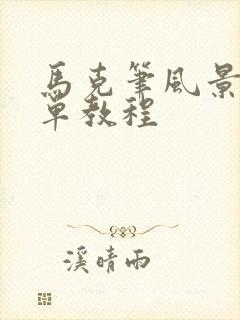 馬克筆風景
單教程
溪晴雨